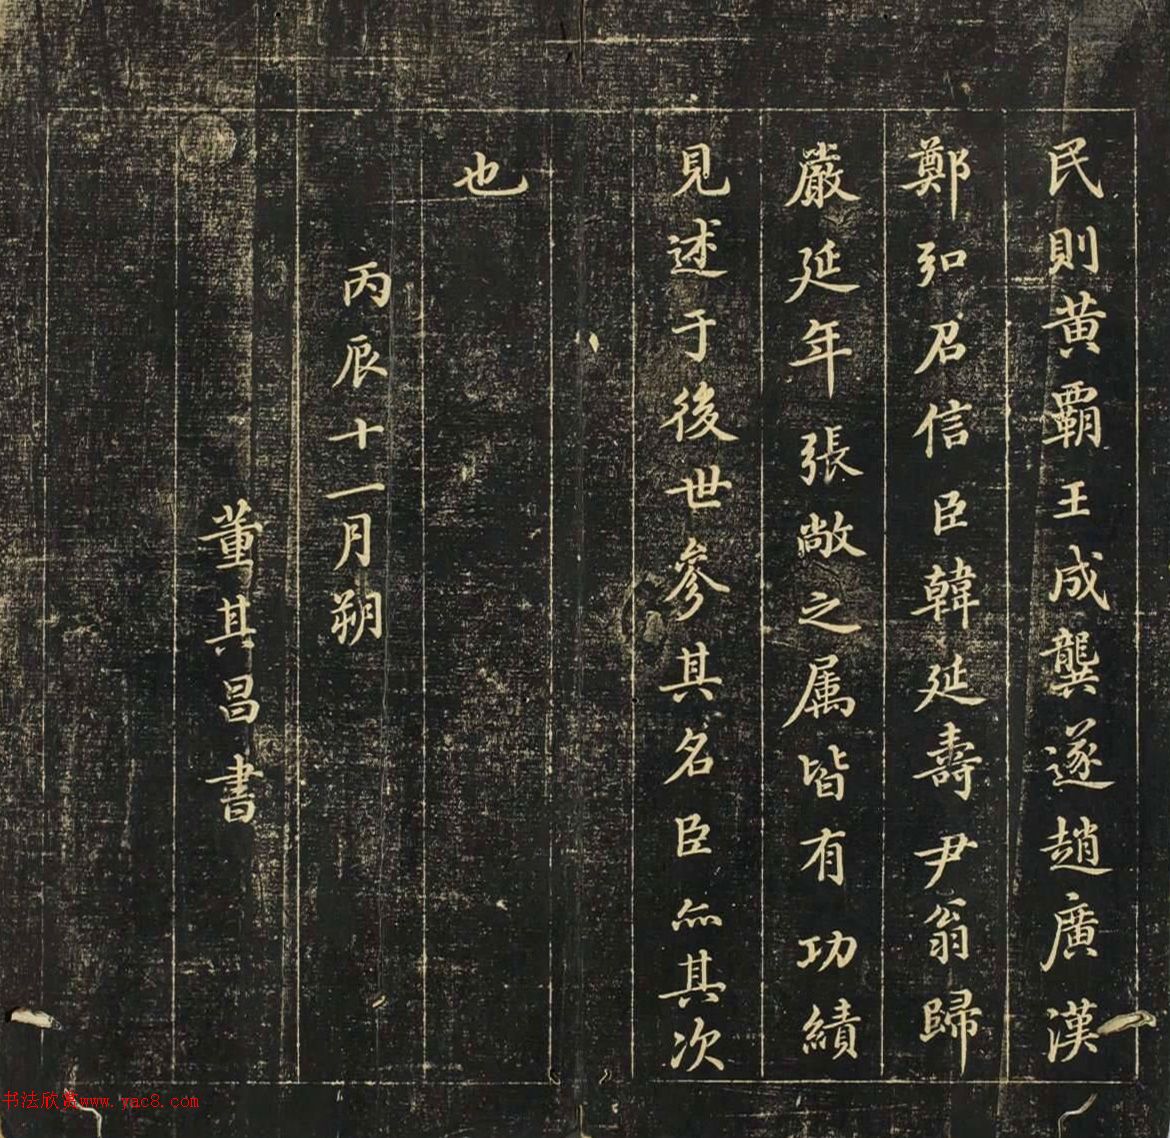 民則黃霸王成龔遂趙廣漢
鄭弘召信臣韓延壽尹翁歸
嚴延年張敞之属皆有功績
見述于後世參其名臣亦其次
也
丙辰十一月朔
董其昌書
书法欣赏 www.yac8.com